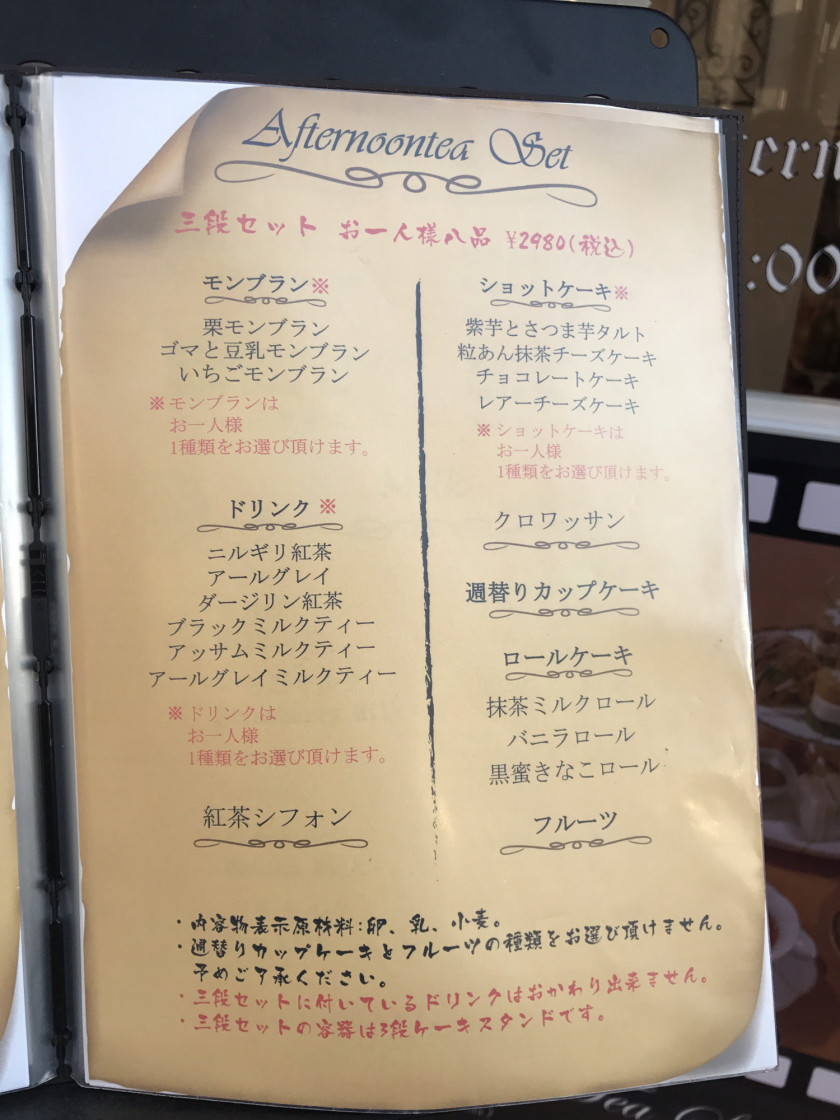 Afternoontea Set
三段セット お一人様八品 ¥2980(税込)
モンブラン※
栗モンブラン
ゴマと豆乳モンブラン
いちごモンブラン
※モンブランは
お一人様
1種類をお選び頂けます。
ドリンク※
ニルギリ紅茶
アールグレイ
ダージリン紅茶
ブラックミルクティー
アッサムミルクティー
アールグレイミルクティー
※ドリンクは
お一人様
1種類をお選び頂けます。
紅茶シフォン
ショットケーキ※
紫芋とさつま芋タルト
粒あん抹茶チーズケーキ
チョコレートケーキ
レアーチーズケーキ
※ショットケーキは
お一人様
1種類をお選び頂けます。
クロワッサン
週替りカップケーキ
ロールケーキ
抹茶ミルクロール
バニラロール
黒蜜きなこロール
フルーツ
・内容物表示原材料:卵、乳、小麦。
・週替りカップケーキとフルーツの種類をお選び頂けません。
予めご了承ください。
・三段セットに付いているドリンクはおかわり出来ません。
・三段セットの容器は3段ケーキスタンドです。
:00